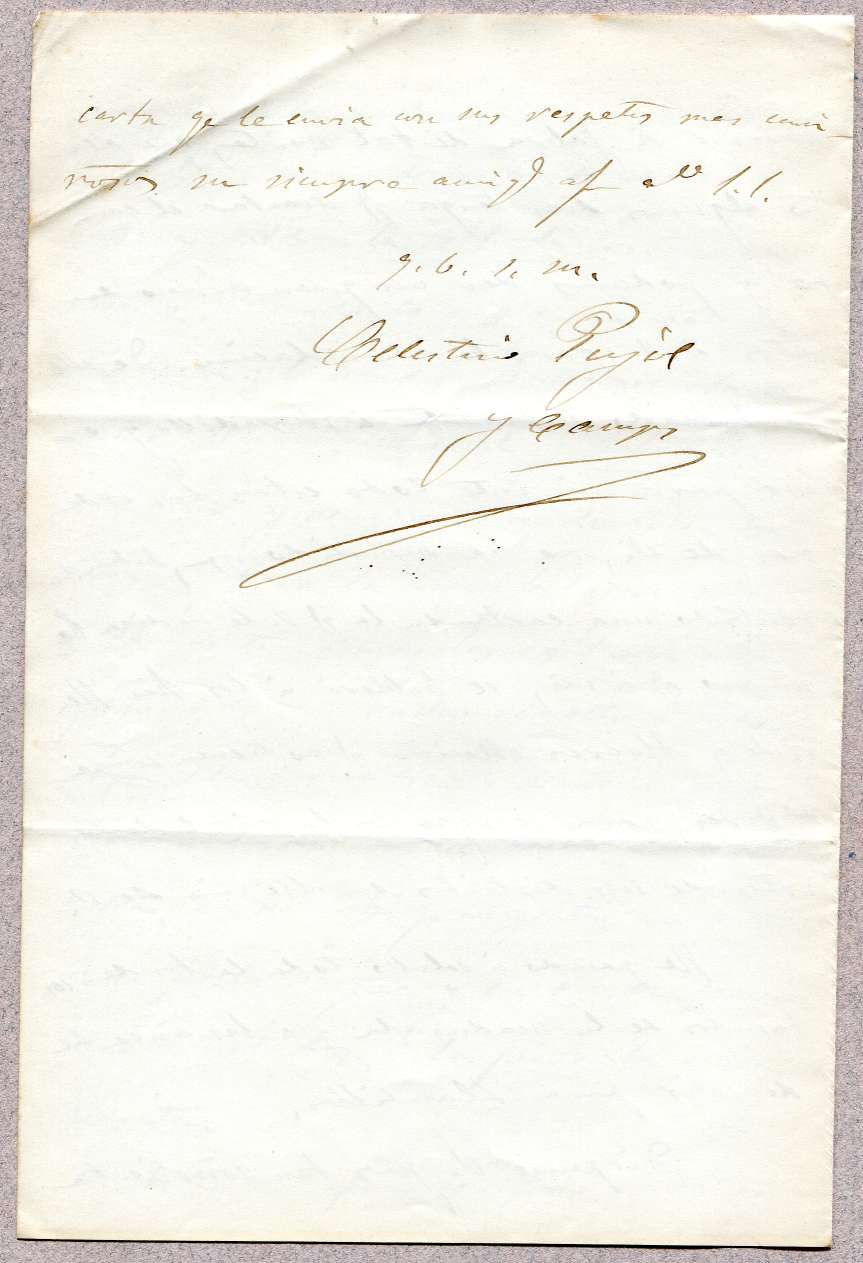 carta qe le envia con sus respetos mas cari-
ñosos su siempre amigo af S. S.
q. b. s. m.
Celestino Pujol
y Camps